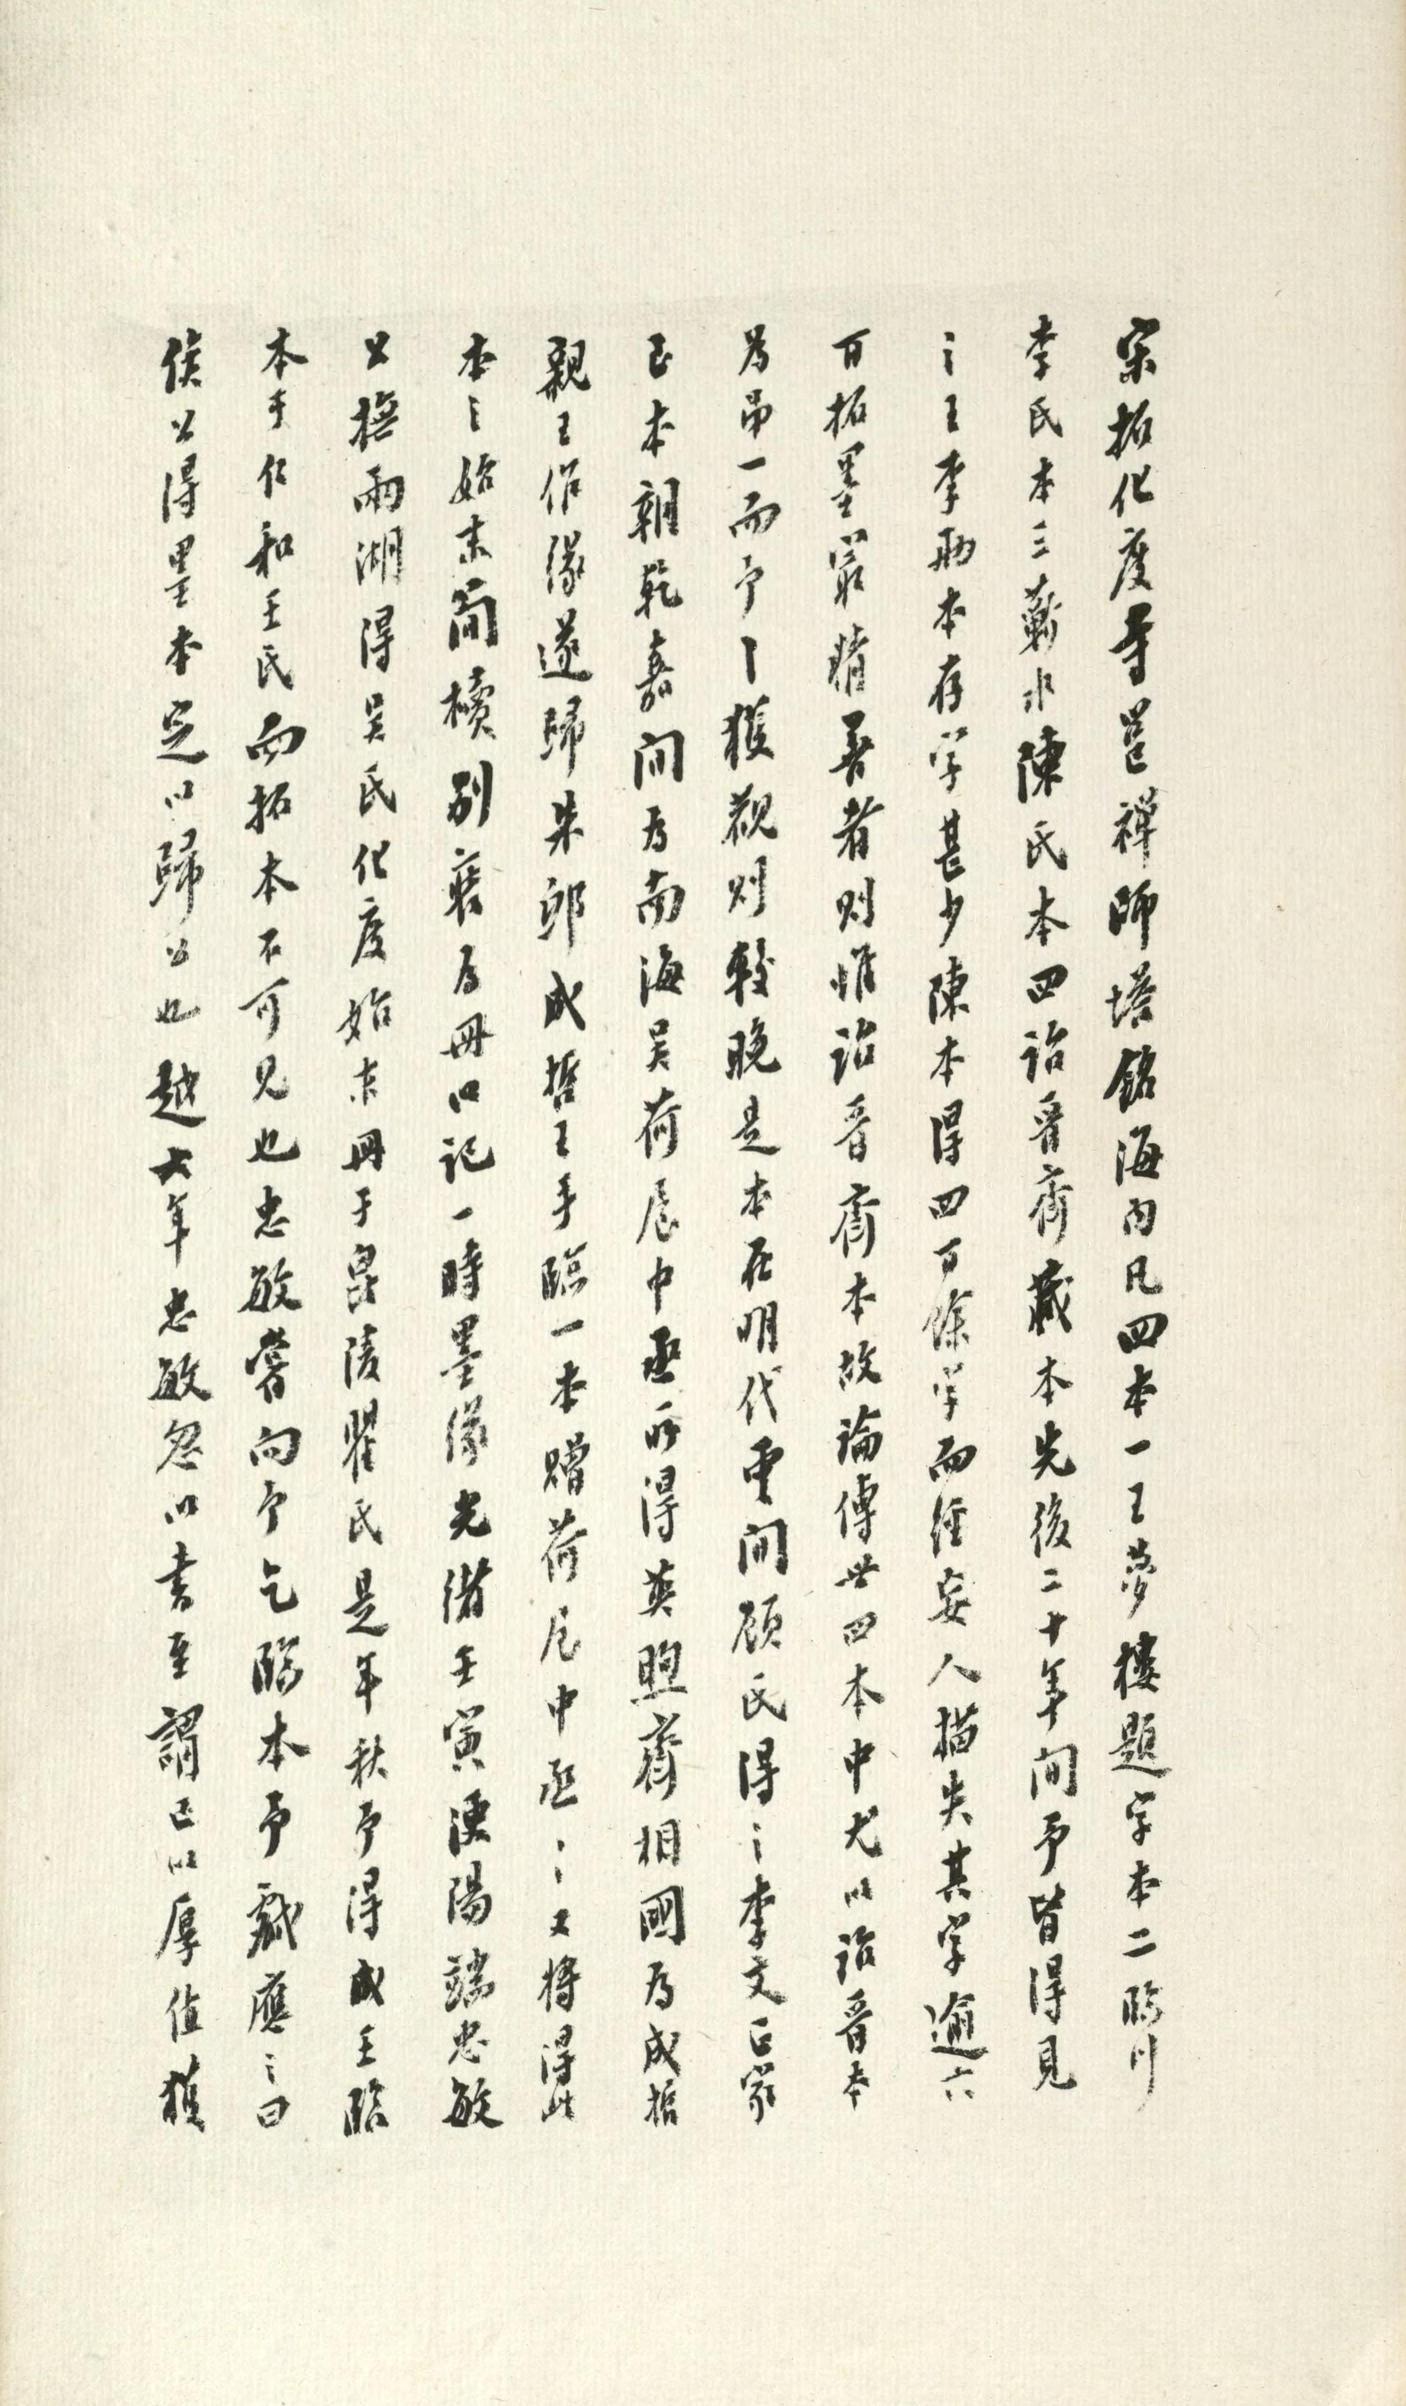 宋拓化度寺邕禪師塔銘海內凡四本一王夢樓題字本二臨川
李氏本三蘄水陳氏本四詒晉齋藏本先後二十年間予皆得見
之王李兩本存字甚少陳本得四百餘字而經妄人描失其字逾六
百拓墨最精善者則惟詒晉齋本故論傳世四本中尤以詒晉本
為弟一而予之獲觀則較晚是本在明代雲間顧氏得之李文正家
至本朝乾嘉間為南海吳荷屋中丞所得英煦齋相國為成哲
親王作緣遂歸朱邸成哲王手臨一本贈荷屋中丞之又將得此
本之始末簡牘別裝為冊以記一時墨緣光緒壬寅浭陽端忠敏
公撫兩湖得吳氏化度始末冊于毘陵瞿氏是年秋予得成王臨
本于仁和王氏而拓本不可見也忠敏嘗向予乞臨本予戲應之曰
俟公得墨本定以歸公也越六年忠敏忽以書至謂已以厚值獲